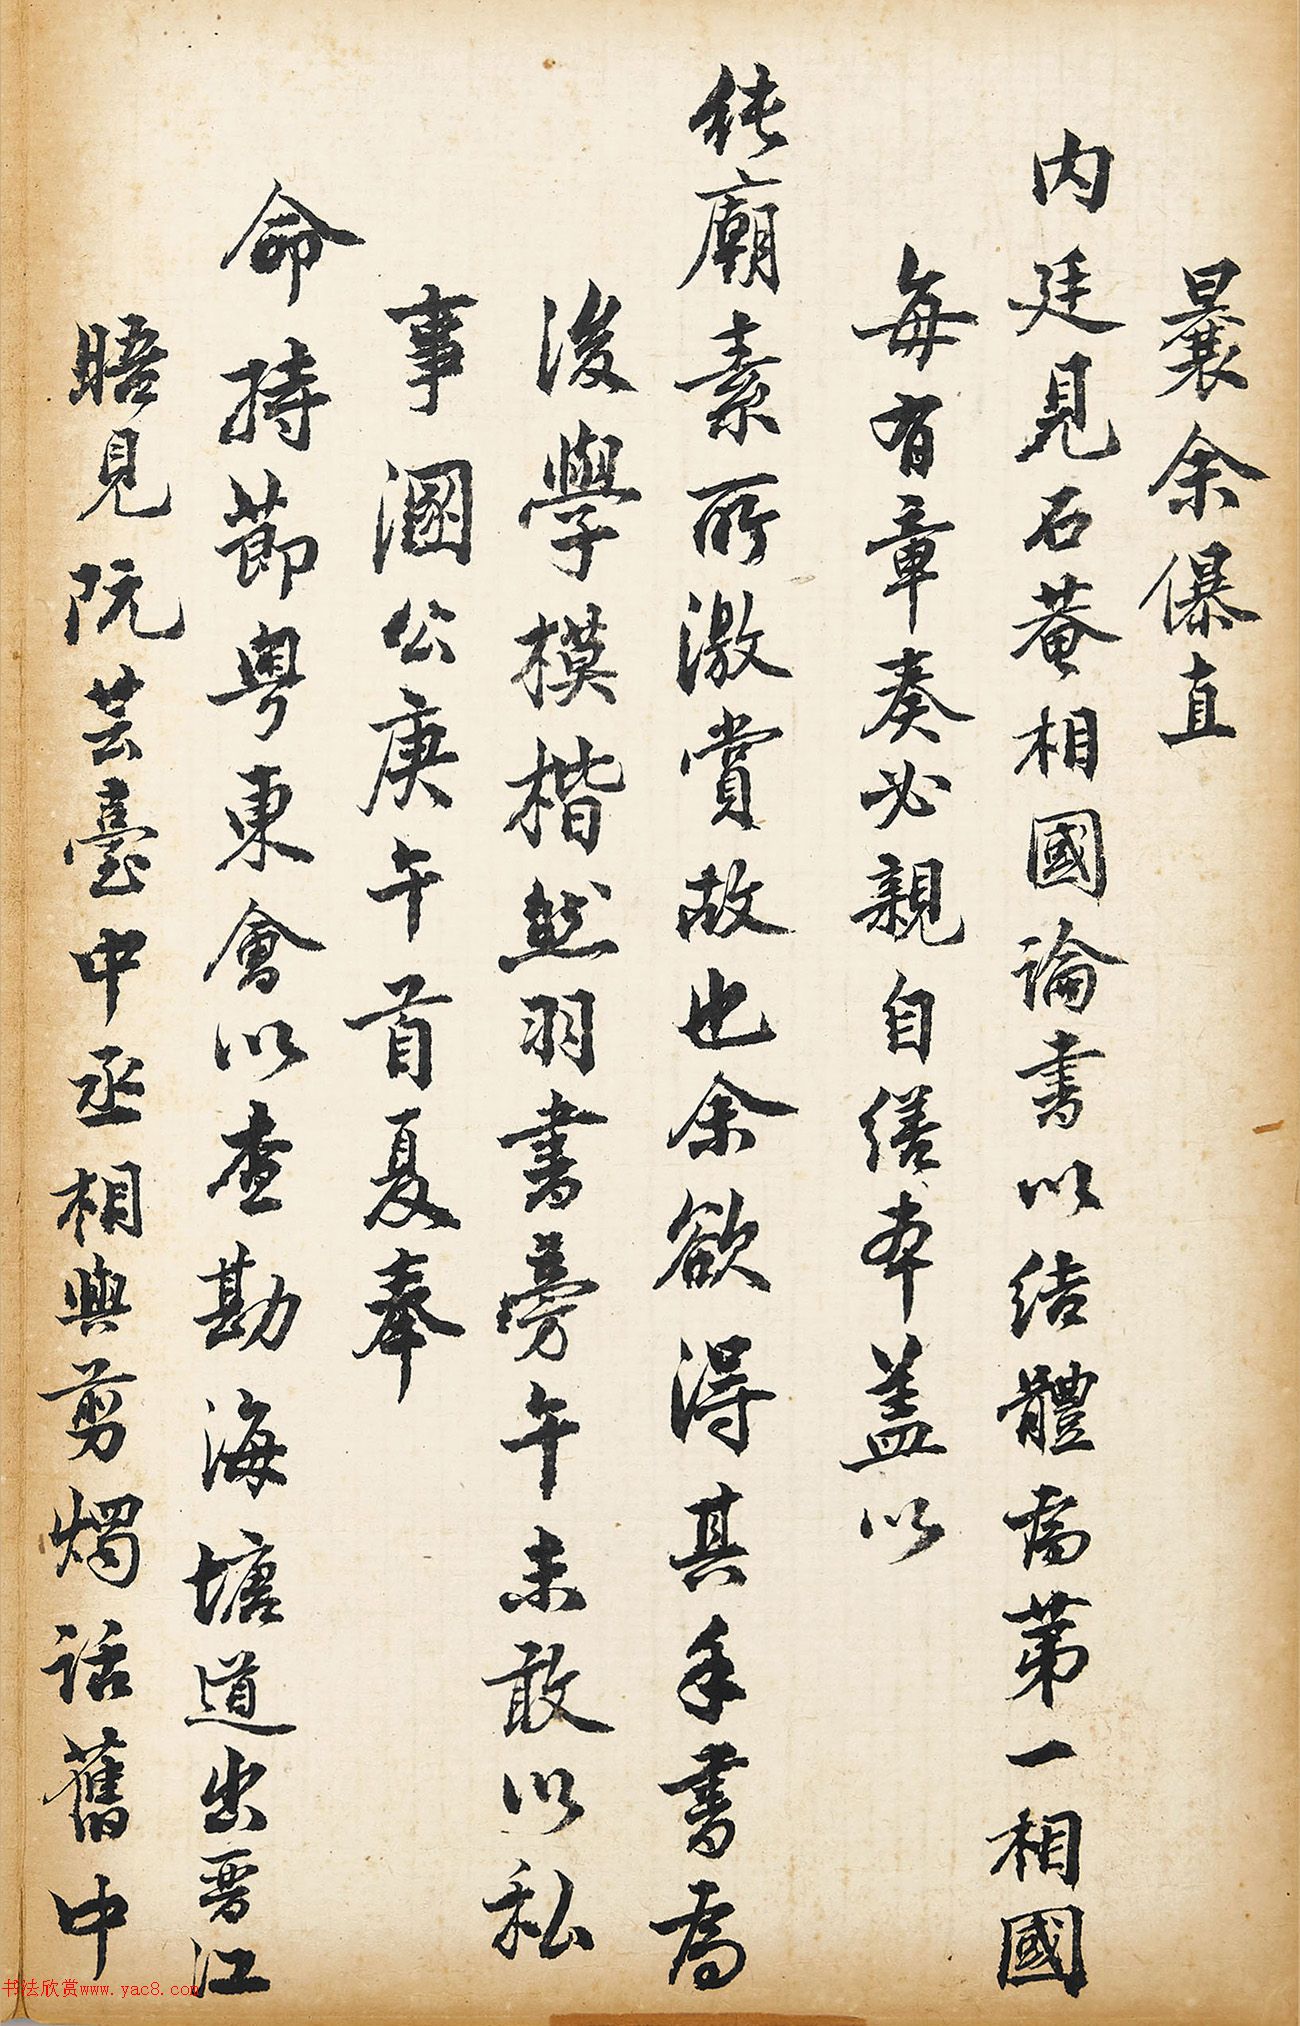 曩余儤直
内廷見石菴相國論書以結體為第一相國
每有章奏必親自繕本蓋以
純廟素所激賞故也余欲得其手書為
後學模楷然羽書旁午未敢以私
事溷公庚午首夏奉
命持節粵東會以查勘海塘道出晉江
晤見阮芸臺中丞相與剪燭話舊中
书法欣赏www.yac8.com